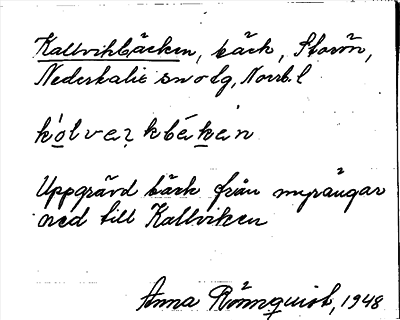 Kallvikbäcken, bäck, Storön,
Nederkalix snvolg, Norrb. l
Uppgrävd bäck från myrängar
ned till Kallviken
Anna Rönnquist, 1948